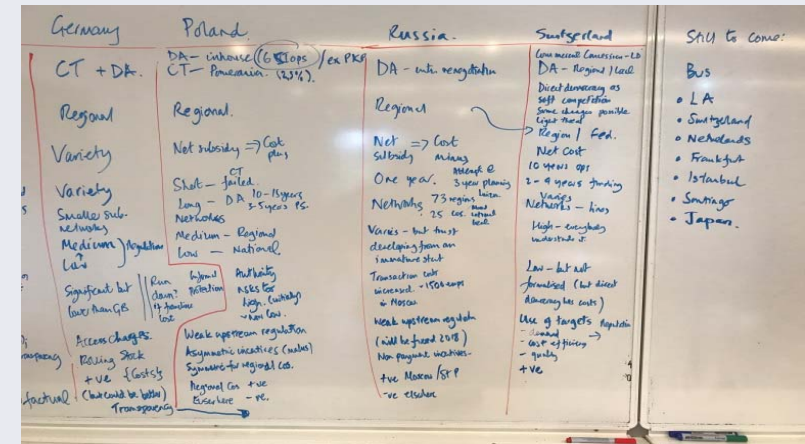 Germany
CT + DA.
Regional
Variety
Variety
Smaller sub-
networks
Medium } Regulation
Low
Significant but
lower than GB
Run
down?
if franchise
lose
Access Charges.
Rolling Stock
+ve {Costs}
(but could be better)
Transparency
factual
Poland
DA – inhouse (6 slops / ex PKP
CT – Pomerania. (23%).
Regional.
Net subsidy => Cost
plus
Short – CT failed.
Long – DA 10-15 years
3-5 years PS.
Networks
Medium – Regional
Low – National.
Informal
Protection
Authority
risks too
high. (initially)
– now low.
Weak upstream regulation
Asymmetric incentives (malus)
Symmetric for regional cos.
Regional Cos +ve
Elsewhere -ve.
Russia.
DA – under renegotiation
Regional
Net => Cost
subsidy minus
One year. Attempt @
3 year planning
Networks 73 regions
25 cos.
Varies – but trust
developing from an
immature start
Transaction costs
increased. ~1500 emps
in Moscow
Weak upstream regulation
(will be freed 2018)
Non payment incentives.
+ve Moscow / St P
-ve elsewhere
Switzerland
Commercial Concession – LD
DA – Regional / Local
Direct democracy as
soft competition
Some changes possible
Light threat
Region / Fed.
Net Cost
10 years ops
2-4 years funding
Varies
Networks – lines
High – everybody
understands it.
Low – but not
formalised (but direct
democracy has costs)
Use of targets Regulation
- demand
- cost efficiency
- quality
+ve
Still to come:
Bus
• LA
• Switzerland
• Netherlands
• Frankfurt
• Istanbul
• Santiago
• Japan.